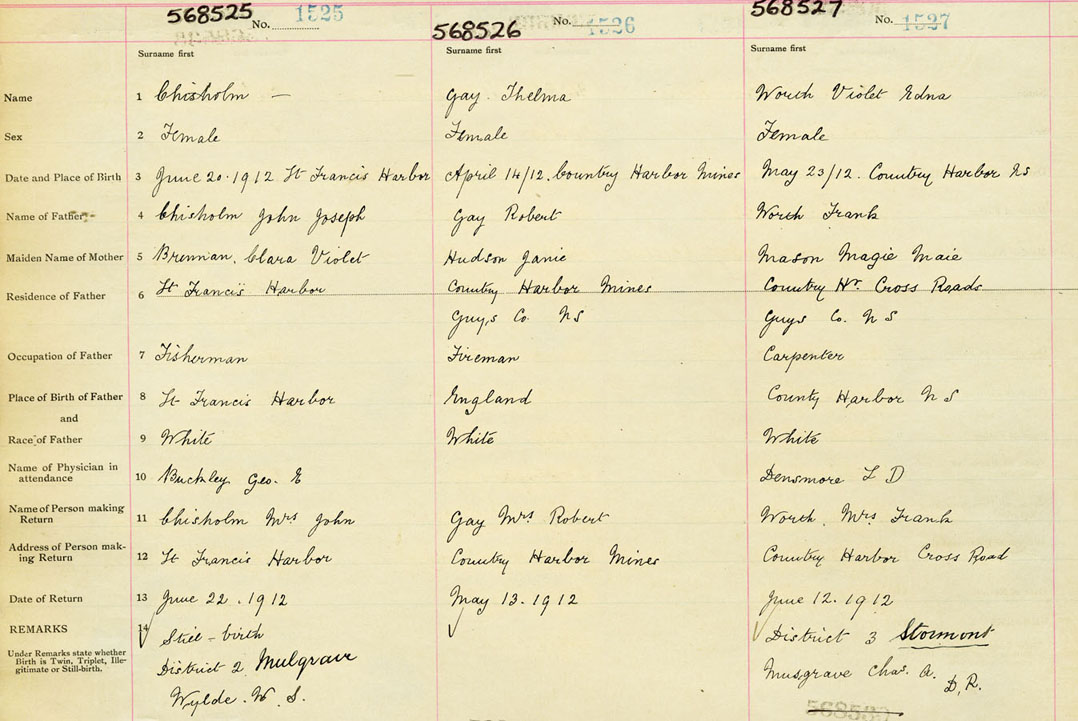 568525 No. 1525
568526 No. 1526
568527 No. 1527
Surname first Surname first Surname first
Name 1 Chisholm — Gay Thelma Worth Violet Edna
Sex 2 Female Female Female
Date and Place of Birth 3 June 20. 1912 St Francis Harbor April 14/12. Country Harbor Mines May 23/12. Country Harbor NS
Name of Father 4 Chisholm John Joseph Gay Robert Worth Frank
Maiden Name of Mother 5 Brennan, Clara Violet Hudson Janie Mason Magie Maie
Residence of Father 6 St Francis Harbor Country Harbor Mines Country Hr. Cross Roads
Guys Co. NS Guys Co. N S
Occupation of Father 7 Fisherman Fireman Carpenter
Place of Birth of Father 8 St Francis Harbor England County Harbor N S
and
Race of Father 9 White White White
Name of Physician in
attendance 10 Buckley Geo. E Densmore L D
Name of Person making
Return 11 Chisholm Mrs John Gay Mrs Robert Worth, Mrs Frank
Address of Person mak-
ing Return 12 St Francis Harbor Country Harbor Mines Country Harbor Cross Road
Date of Return 13 June 22. 1912 May 13. 1912 June 12. 1912
REMARKS 14 Still-birth District 3 Stormont
Under Remarks state whether
Birth is Twin, Triplet, Ille-
gitimate or Still-birth.
District 2 Mulgrave Musgrave Chas. A.
D.R.
Wylde. W. S.